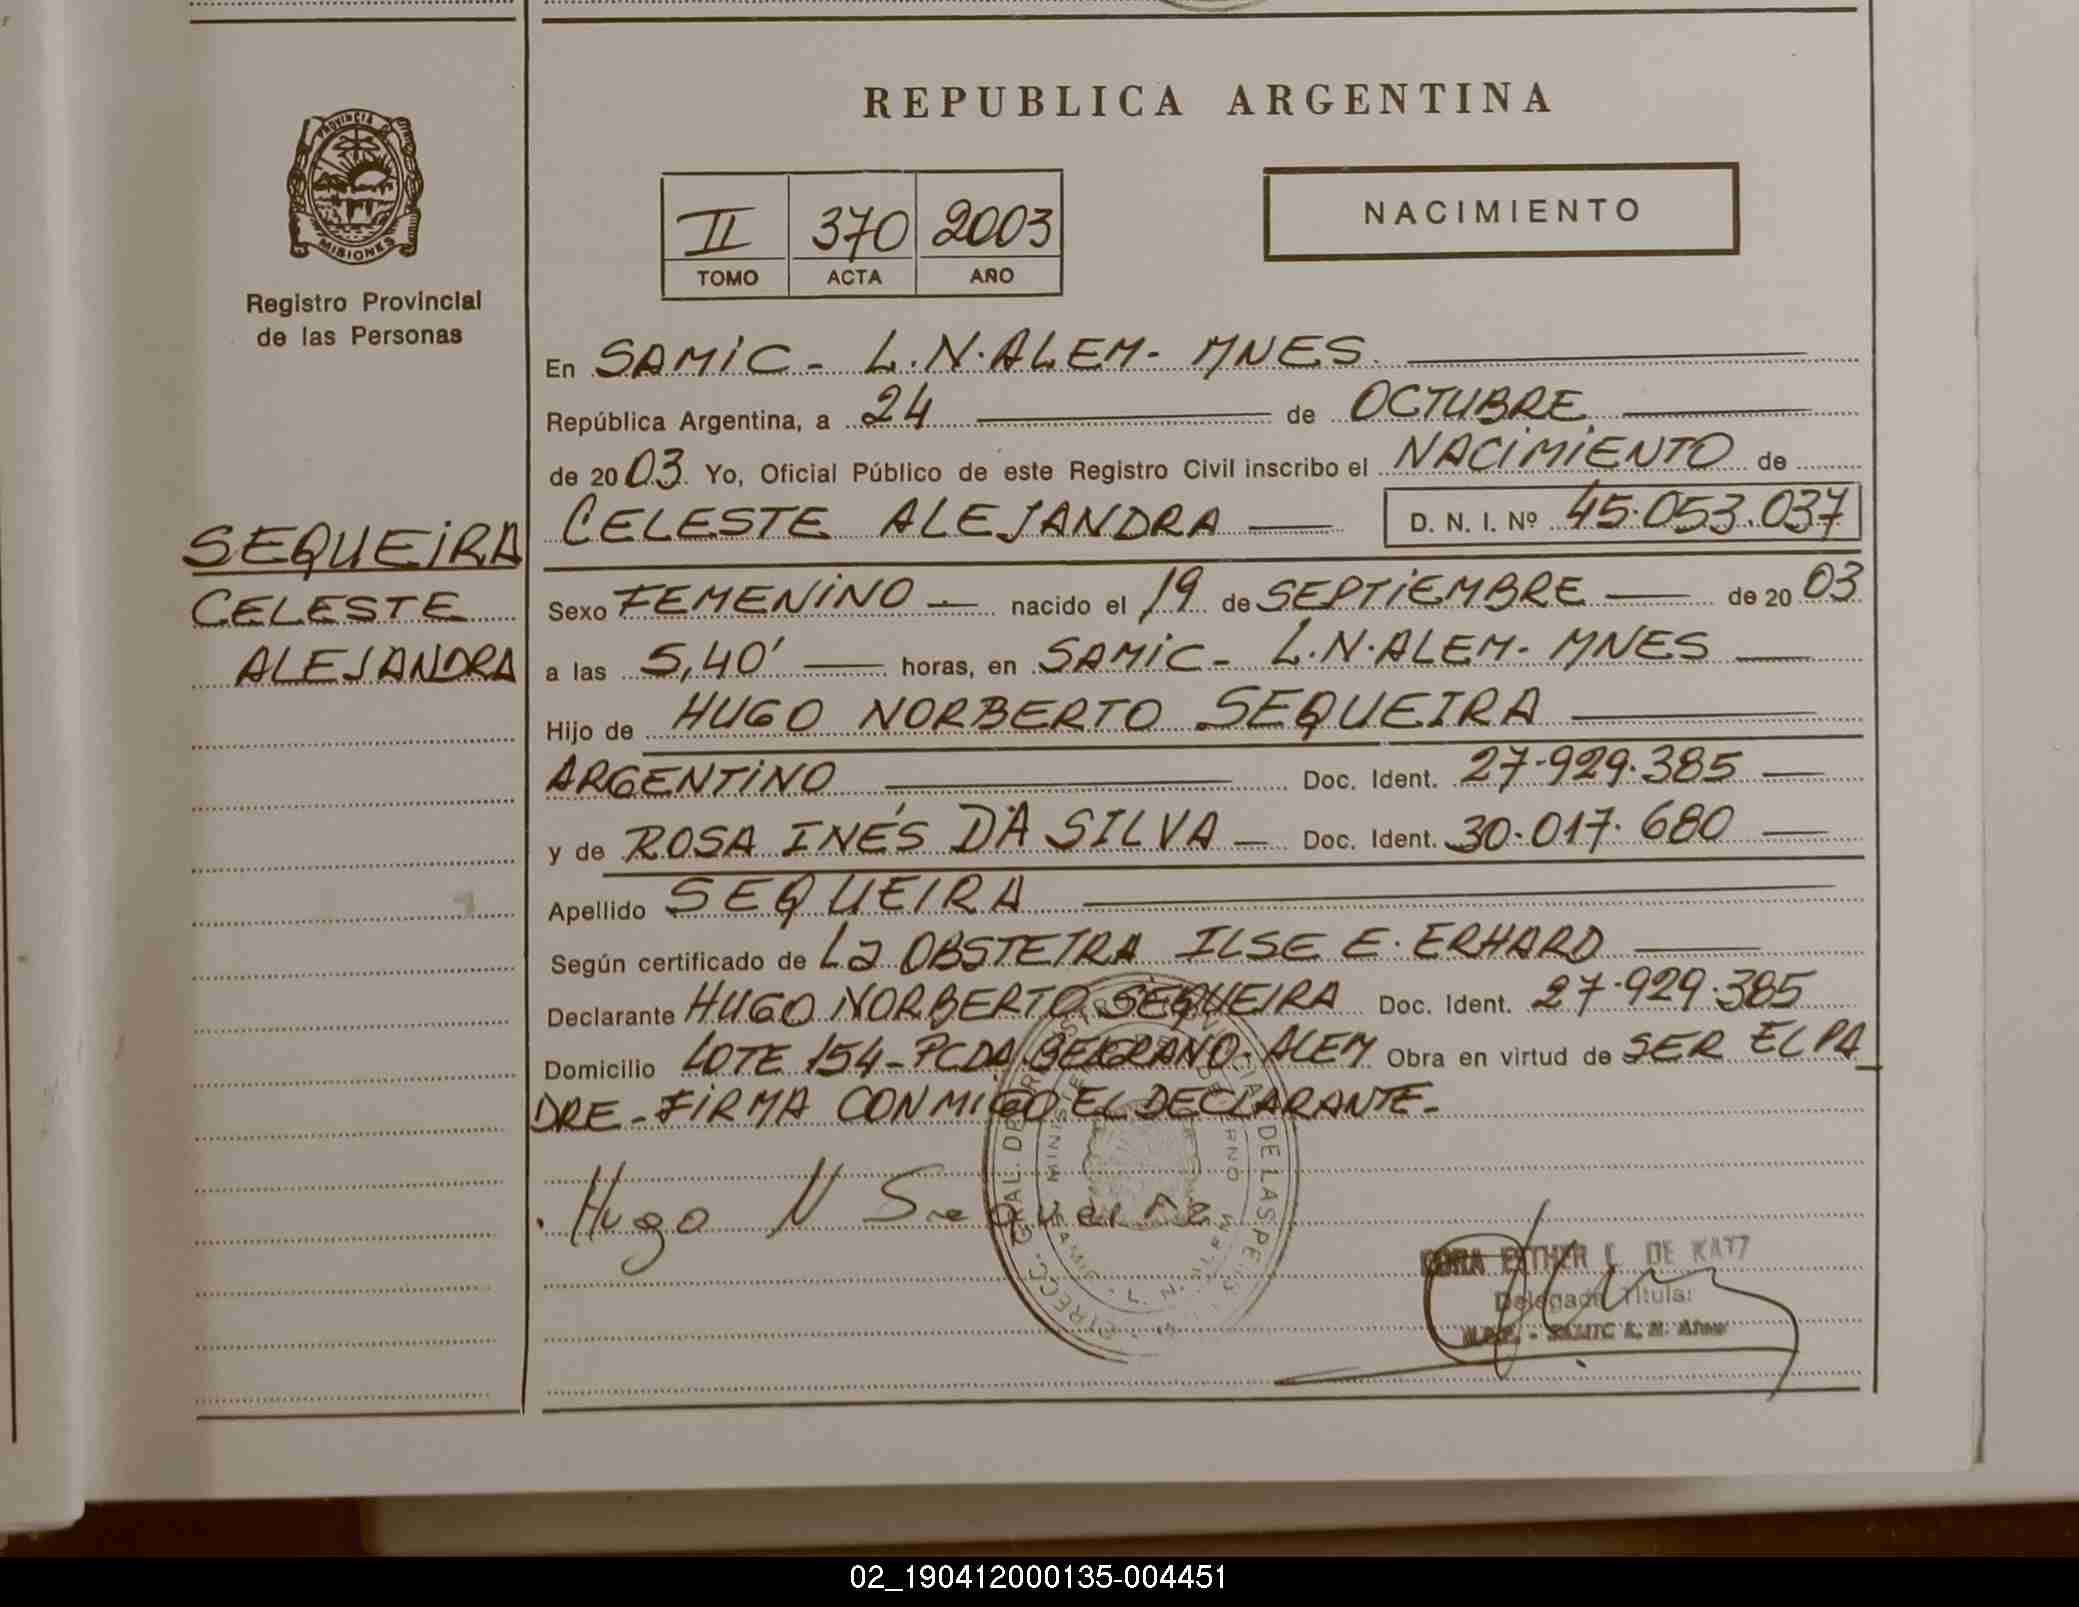 REPUBLICA ARGENTINA
PROVINCIA DE
MISIONES
Registro Provincial
de las Personas
NACIMIENTO
II 370 2003
TOMO ACTA AÑO
En SAMIC - L.N.ALEM - MNES.
República Argentina, a 24 de OCTUBRE
de 2003. Yo, Oficial Público de este Registro Civil inscribo el NACIMIENTO de
CELESTE ALEJANDRA D. N. I. Nº 45.053.037
SEQUEIRA
CELESTE
ALEJANDRA
Sexo FEMENINO — nacido el 19 de SEPTIEMBRE — de 2003
a las 5,40' — horas, en SAMIC - L.N.ALEM - MNES —
Hijo de HUGO NORBERTO SEQUEIRA
ARGENTINO Doc. Ident. 27.929.385 —
y de ROSA INÉS DA SILVA — Doc. Ident. 30.017.680 —
Apellido SEQUEIRA
Según certificado de La OBSTETRA ILSE E. ERHARD
Declarante HUGO NORBERTO SEQUEIRA Doc. Ident. 27.929.385
Domicilio LOTE 154 - PCDA. BELGRANO - ALEM Obra en virtud de SER EL PA
DRE - FIRMA CONMIGO EL DECLARANTE -
Hugo N Sequeira
ESTHER DE KATZ
Titular
SAMIC L. N. Alem
02_190412000135-004451